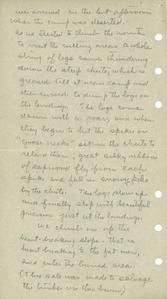 we arrived in the hot afternoon
when the camp was deserted.
As we started to climb the mountain
to meet the cutting areas a whole
string of logs came thundering
down the steep chute, which is
greased till it nears camp and
then curved to dump the logs on
the landing. The logs come
down with a roar and when
they begin to hit the spikes or
"goose necks" set in the chute to
retard them, great silky ribbons
of sapwood fly from each
spike and fall in snowy folks
by the chute. The logs slow up
and finally stop with beautiful
precision just at the landing.
We climb on up the
heart-breaking slope - that is
heart-breaking to the fat man,
and enter the burned area.
(This sale was made to salvage
the timber in this burn)